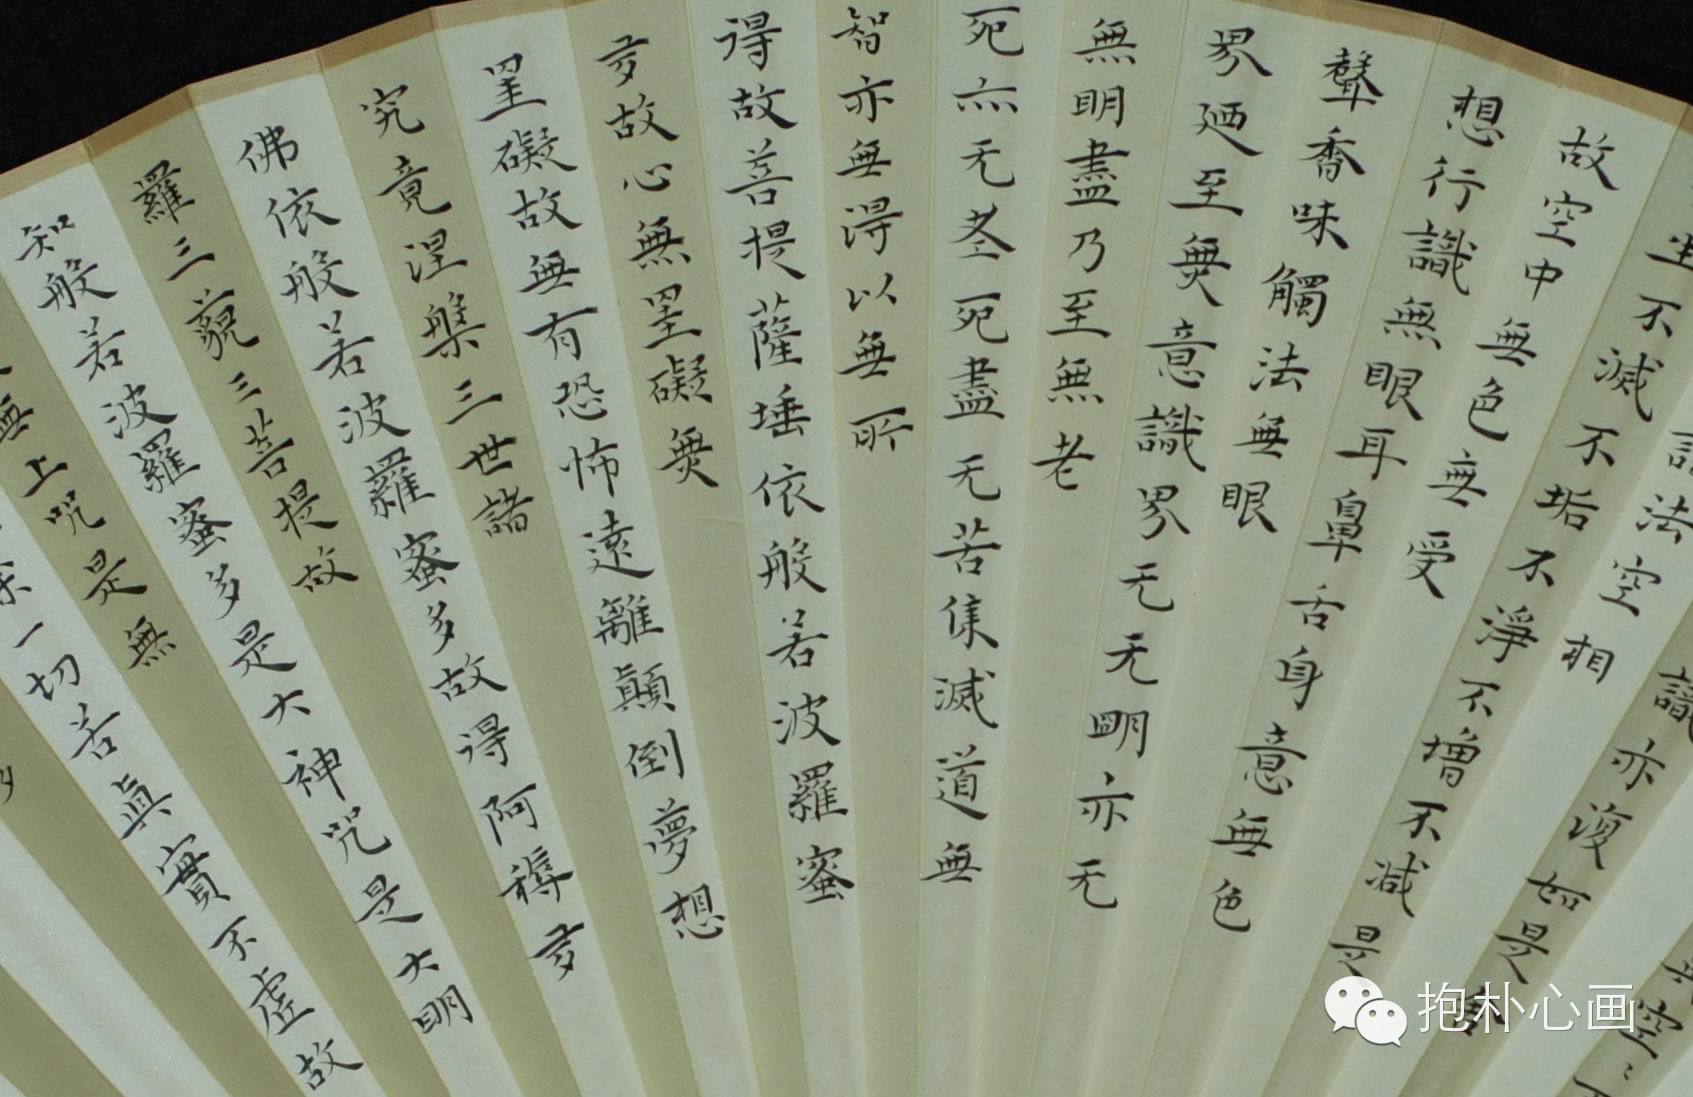 識亦復如是
諸法空相
不滅不垢不淨不增不減是
故空中無色無受
想行識無眼耳鼻舌身意無色
聲香味觸法無眼
界廼至無意識界无无明亦无
無明盡乃至無老
死亦无老死盡无苦集滅道無
智亦無得以無所
得故菩提薩埵依般若波羅蜜
多故心無罣礙無
罣礙故無有恐怖遠離顛倒夢想
究竟涅槃三世諸
佛依般若波羅蜜多故得阿耨多
羅三藐三菩提故
知般若波羅蜜多是大神咒是大明
無上咒是無
一切苦真實不虛故
抱朴心画